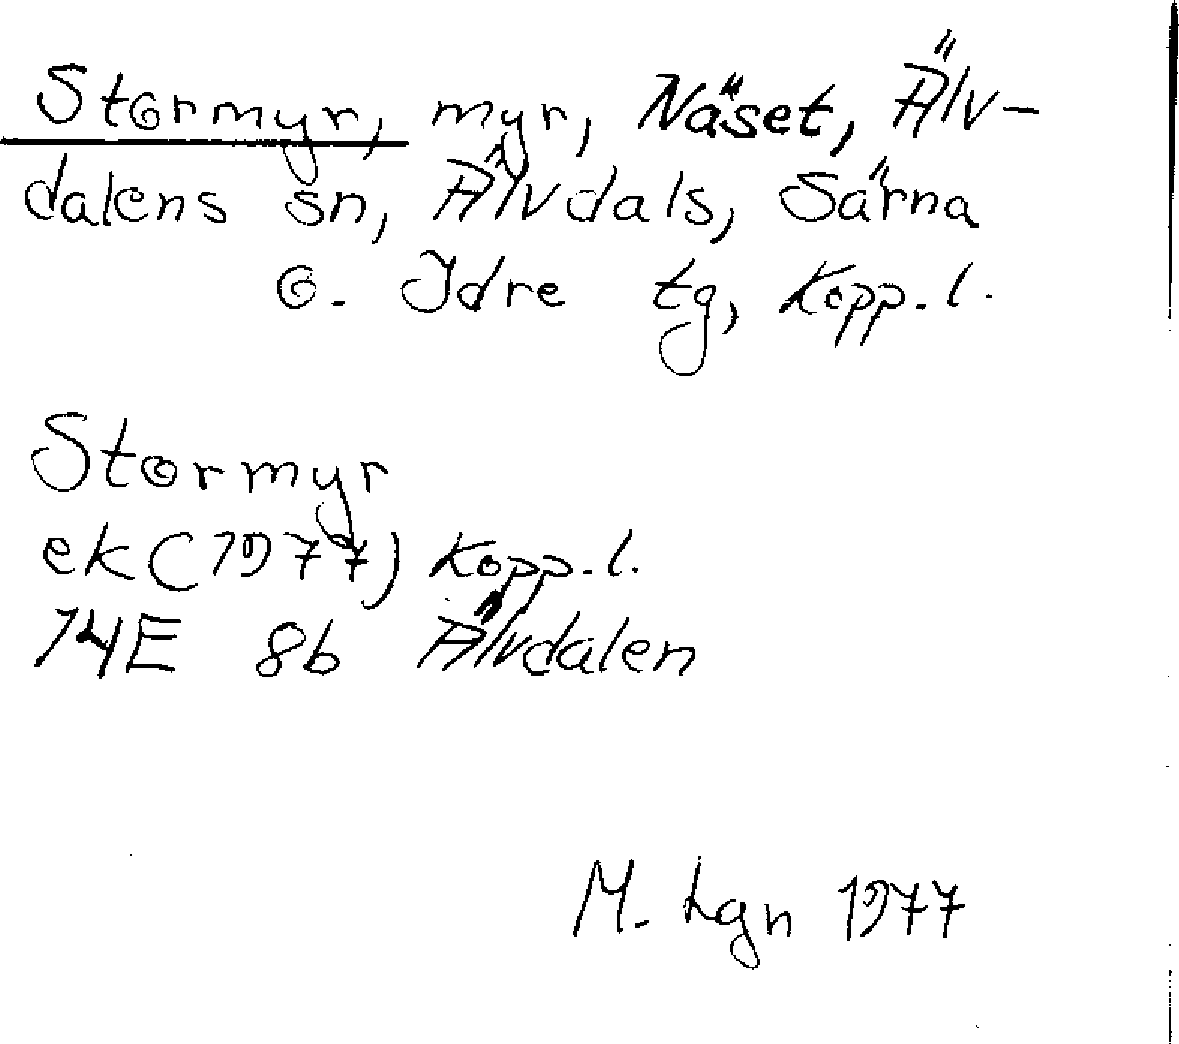 Stormyr, myr, Näset, Älv-
dalens sn, Älvdals, Särna
o. Idre tg, Kopp. l.
Stormyr
ek (1977) Kopp. l.
14E 8b Älvdalen
M. Lgn 1977